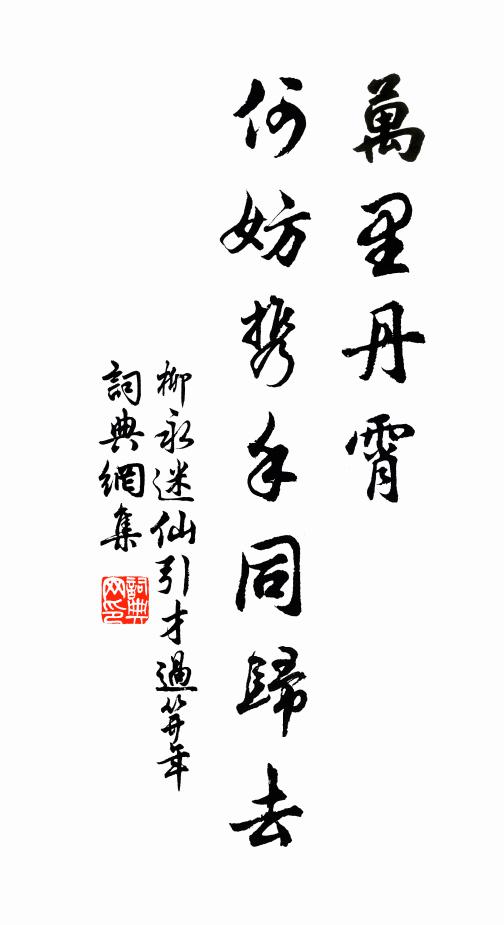 萬里丹霄
何妨攜手同歸去
柳永迷仙引才過笄年
詞典網集
詞典网印